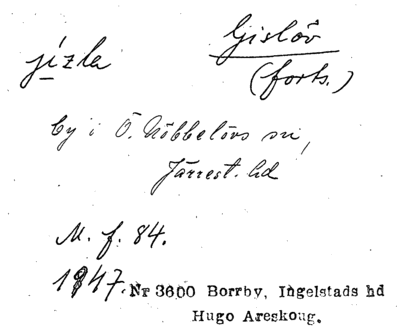 jízla
Gislöv
(forts.)
by i Ö. Nöbbelövs sn,
Järrest. hd
M. f. 84.
1947. Nr 3600 Borrby, Ingelstads hd
Hugo Areskoug.